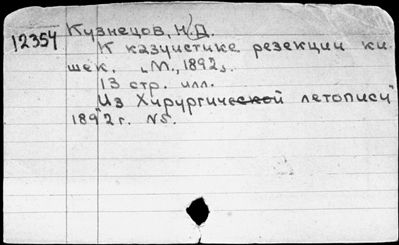 12354 Кузнецов, Н.Д.
К казуистике резекции ки-
шек. [М., 1892].
13 стр. илл.
"Из Хирургической летописи"
1892 г. №5.